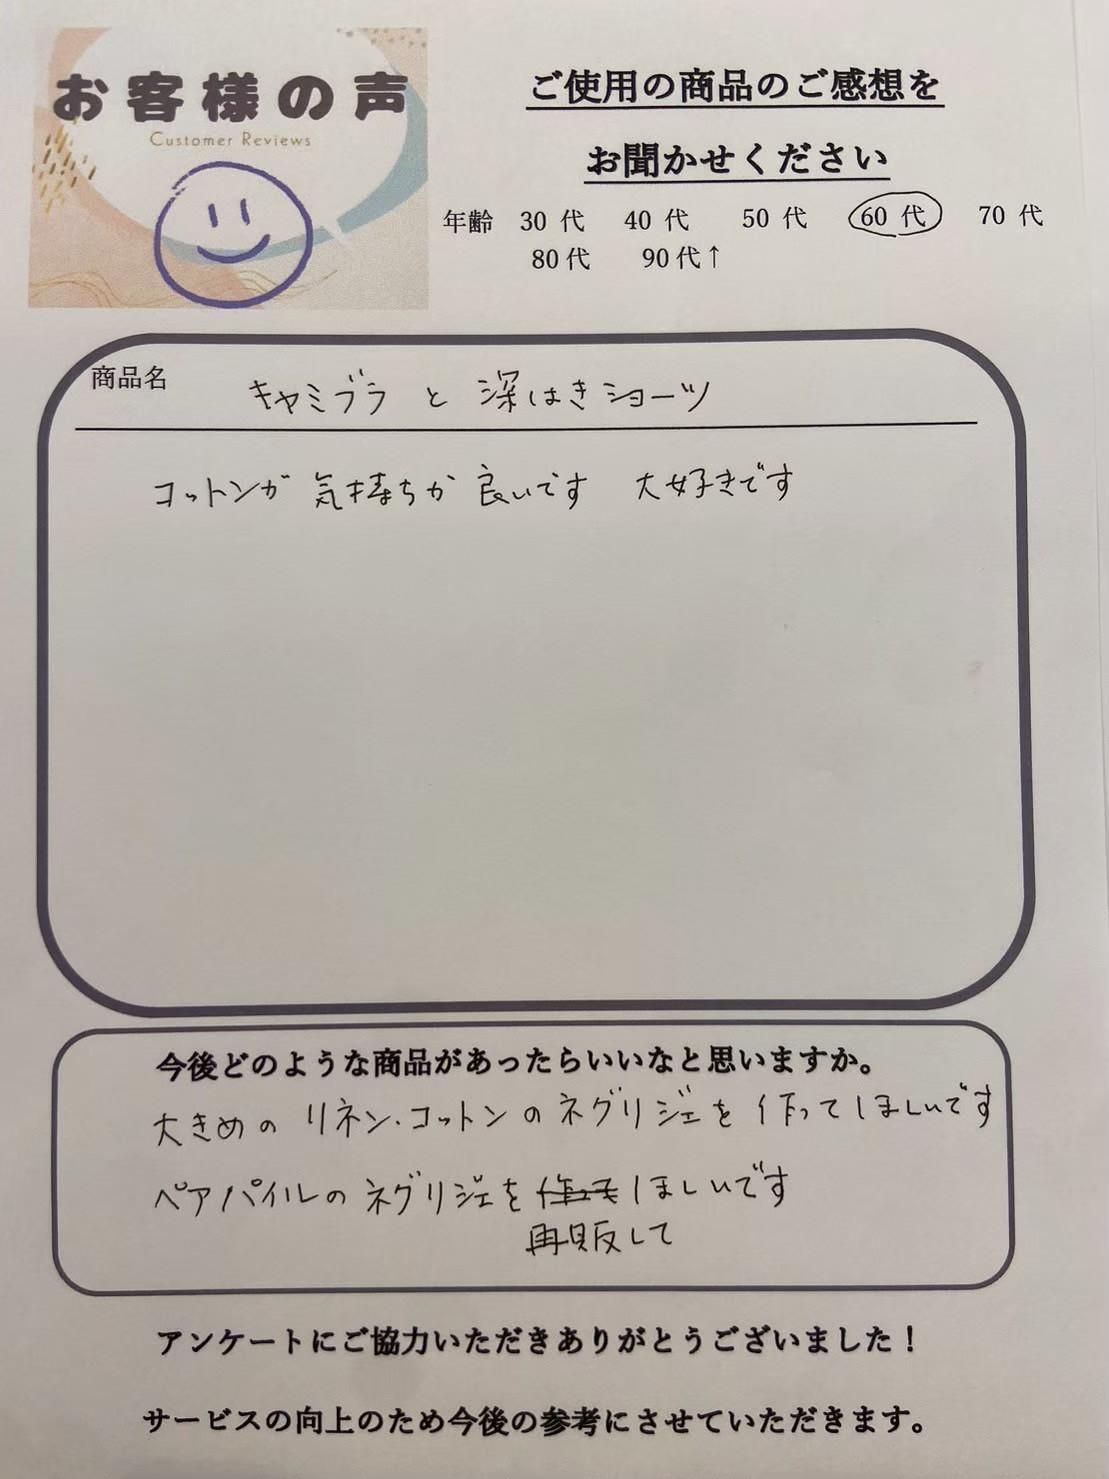 お客様の声
Customer Reviews
ご使用の商品のご感想を
お聞かせください
年齢 30 代 40 代 50 代 60 代 70 代
80代 90代↑
商品名 キャミブラ と 深はきショーツ
コットンが 気持ちが 良いです 大好きです
今後どのような商品があったらいいなと思いますか。
大きめの リネン・コットンのネグリジェを 作ってほしいです
ペアパイルのネグリジェを ほしいです
再販して
アンケートにご協力いただきありがとうございました！
サービスの向上のため今後の参考にさせていただきます。